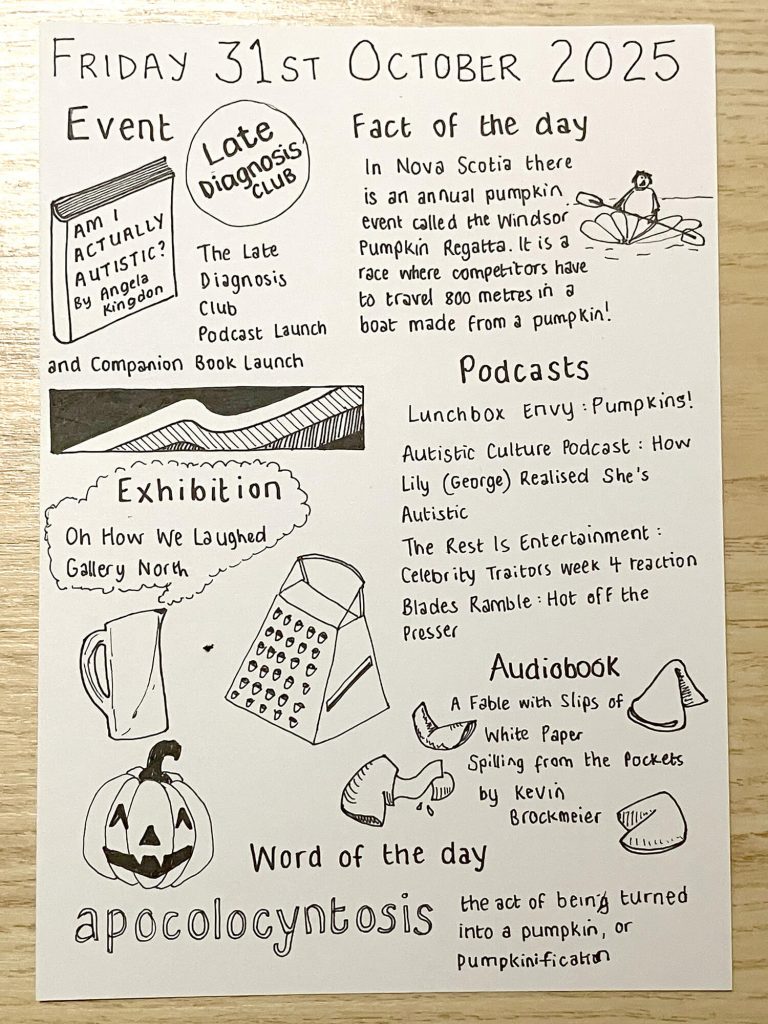 FRIDAY 31ST OCTOBER 2025
Event
Late
Diagnosis
CLUB
AM I
ACTUALLY
AUTISTIC?
By Angela
Kingdon
The Late
Diagnosis
Club
Podcast Launch
and Companion Book Launch
Fact of the day
In Nova Scotia there
is an annual pumpkin
event called the Windsor
Pumpkin Regatta. It is a
race where competitors have
to travel 800 metres in a
boat made from a pumpkin!
Exhibition
Oh How We Laughed
Gallery North
Podcasts
Lunchbox Envy : Pumpkins!
Autistic Culture Podcast : How
Lily (George) Realised She's
Autistic
The Rest Is Entertainment :
Celebrity Traitors week 4 reaction
Blades Ramble : Hot off the
Presser
Audiobook
A Fable with Slips of
White Paper
Spilling from the Pockets
by Kevin
Brockmeier
Word of the day
apocolocyntosis
the act of being turned
into a pumpkin, or
pumpkinification